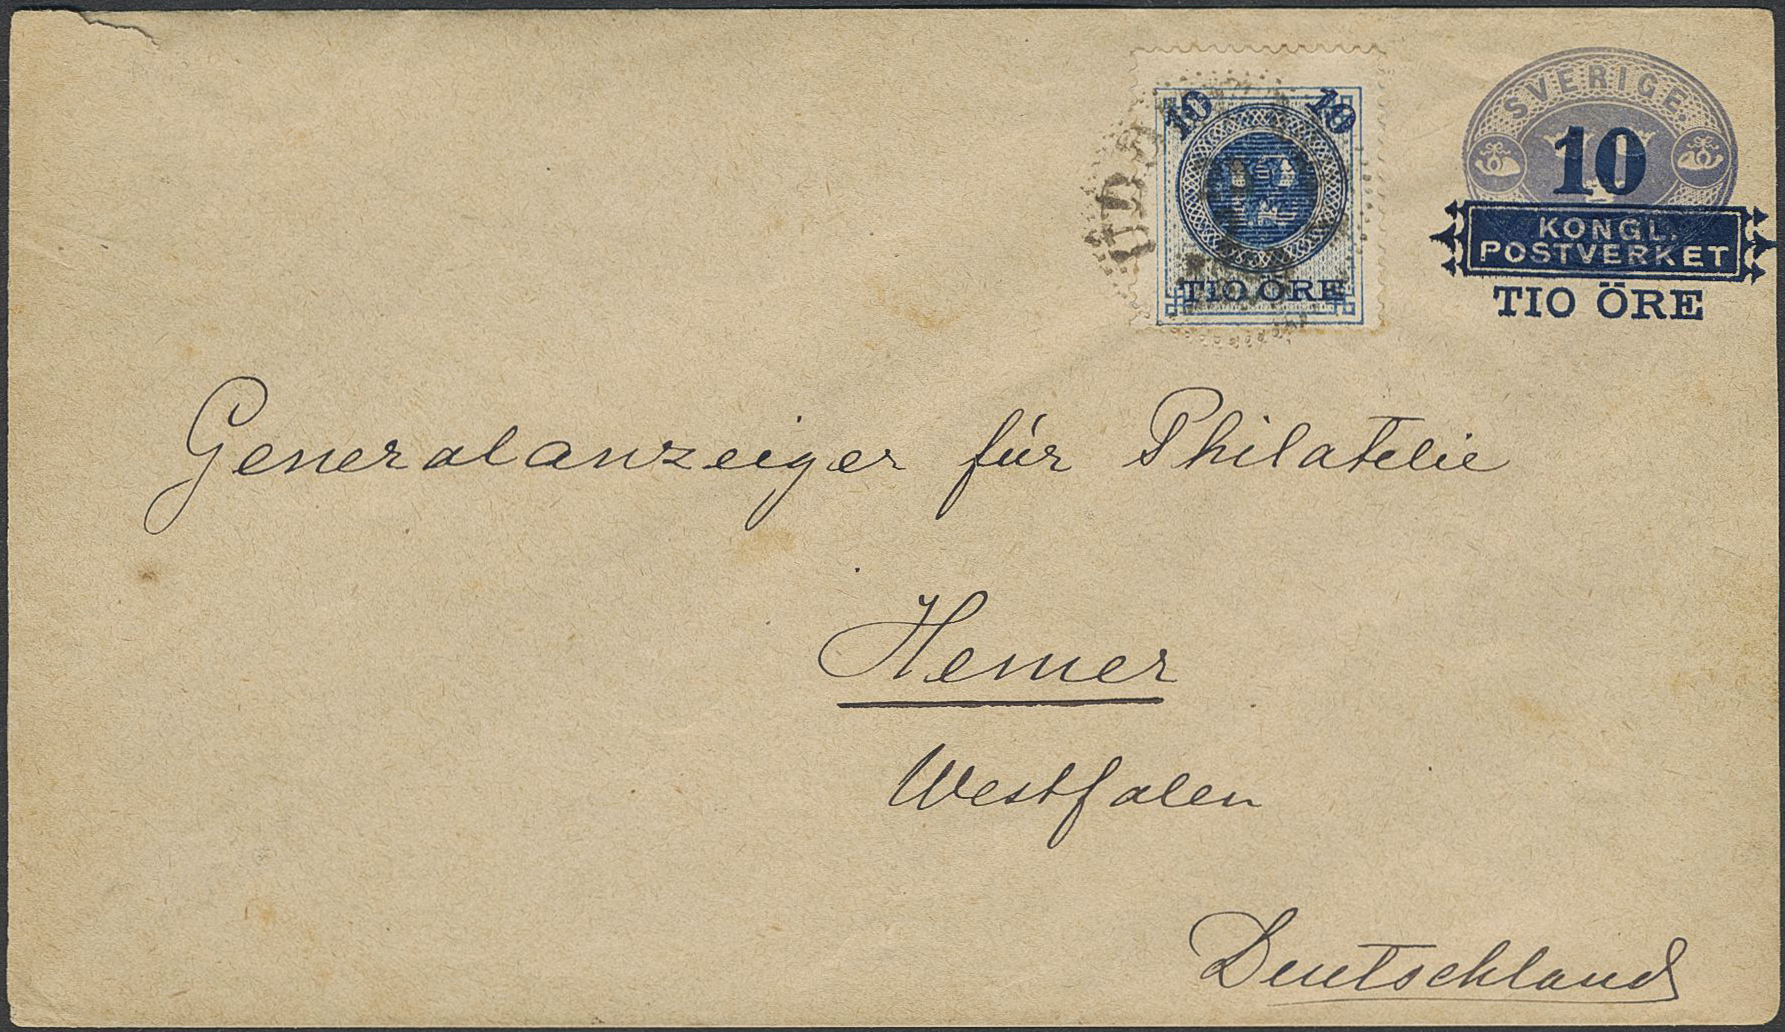 10 10
TIO ÖRE
SVERIGE.
10
KONGL.
POSTVERKET
TIO ÖRE
Generalanzeiger für Philatelie
Hemer
Westfalen
Deutschland